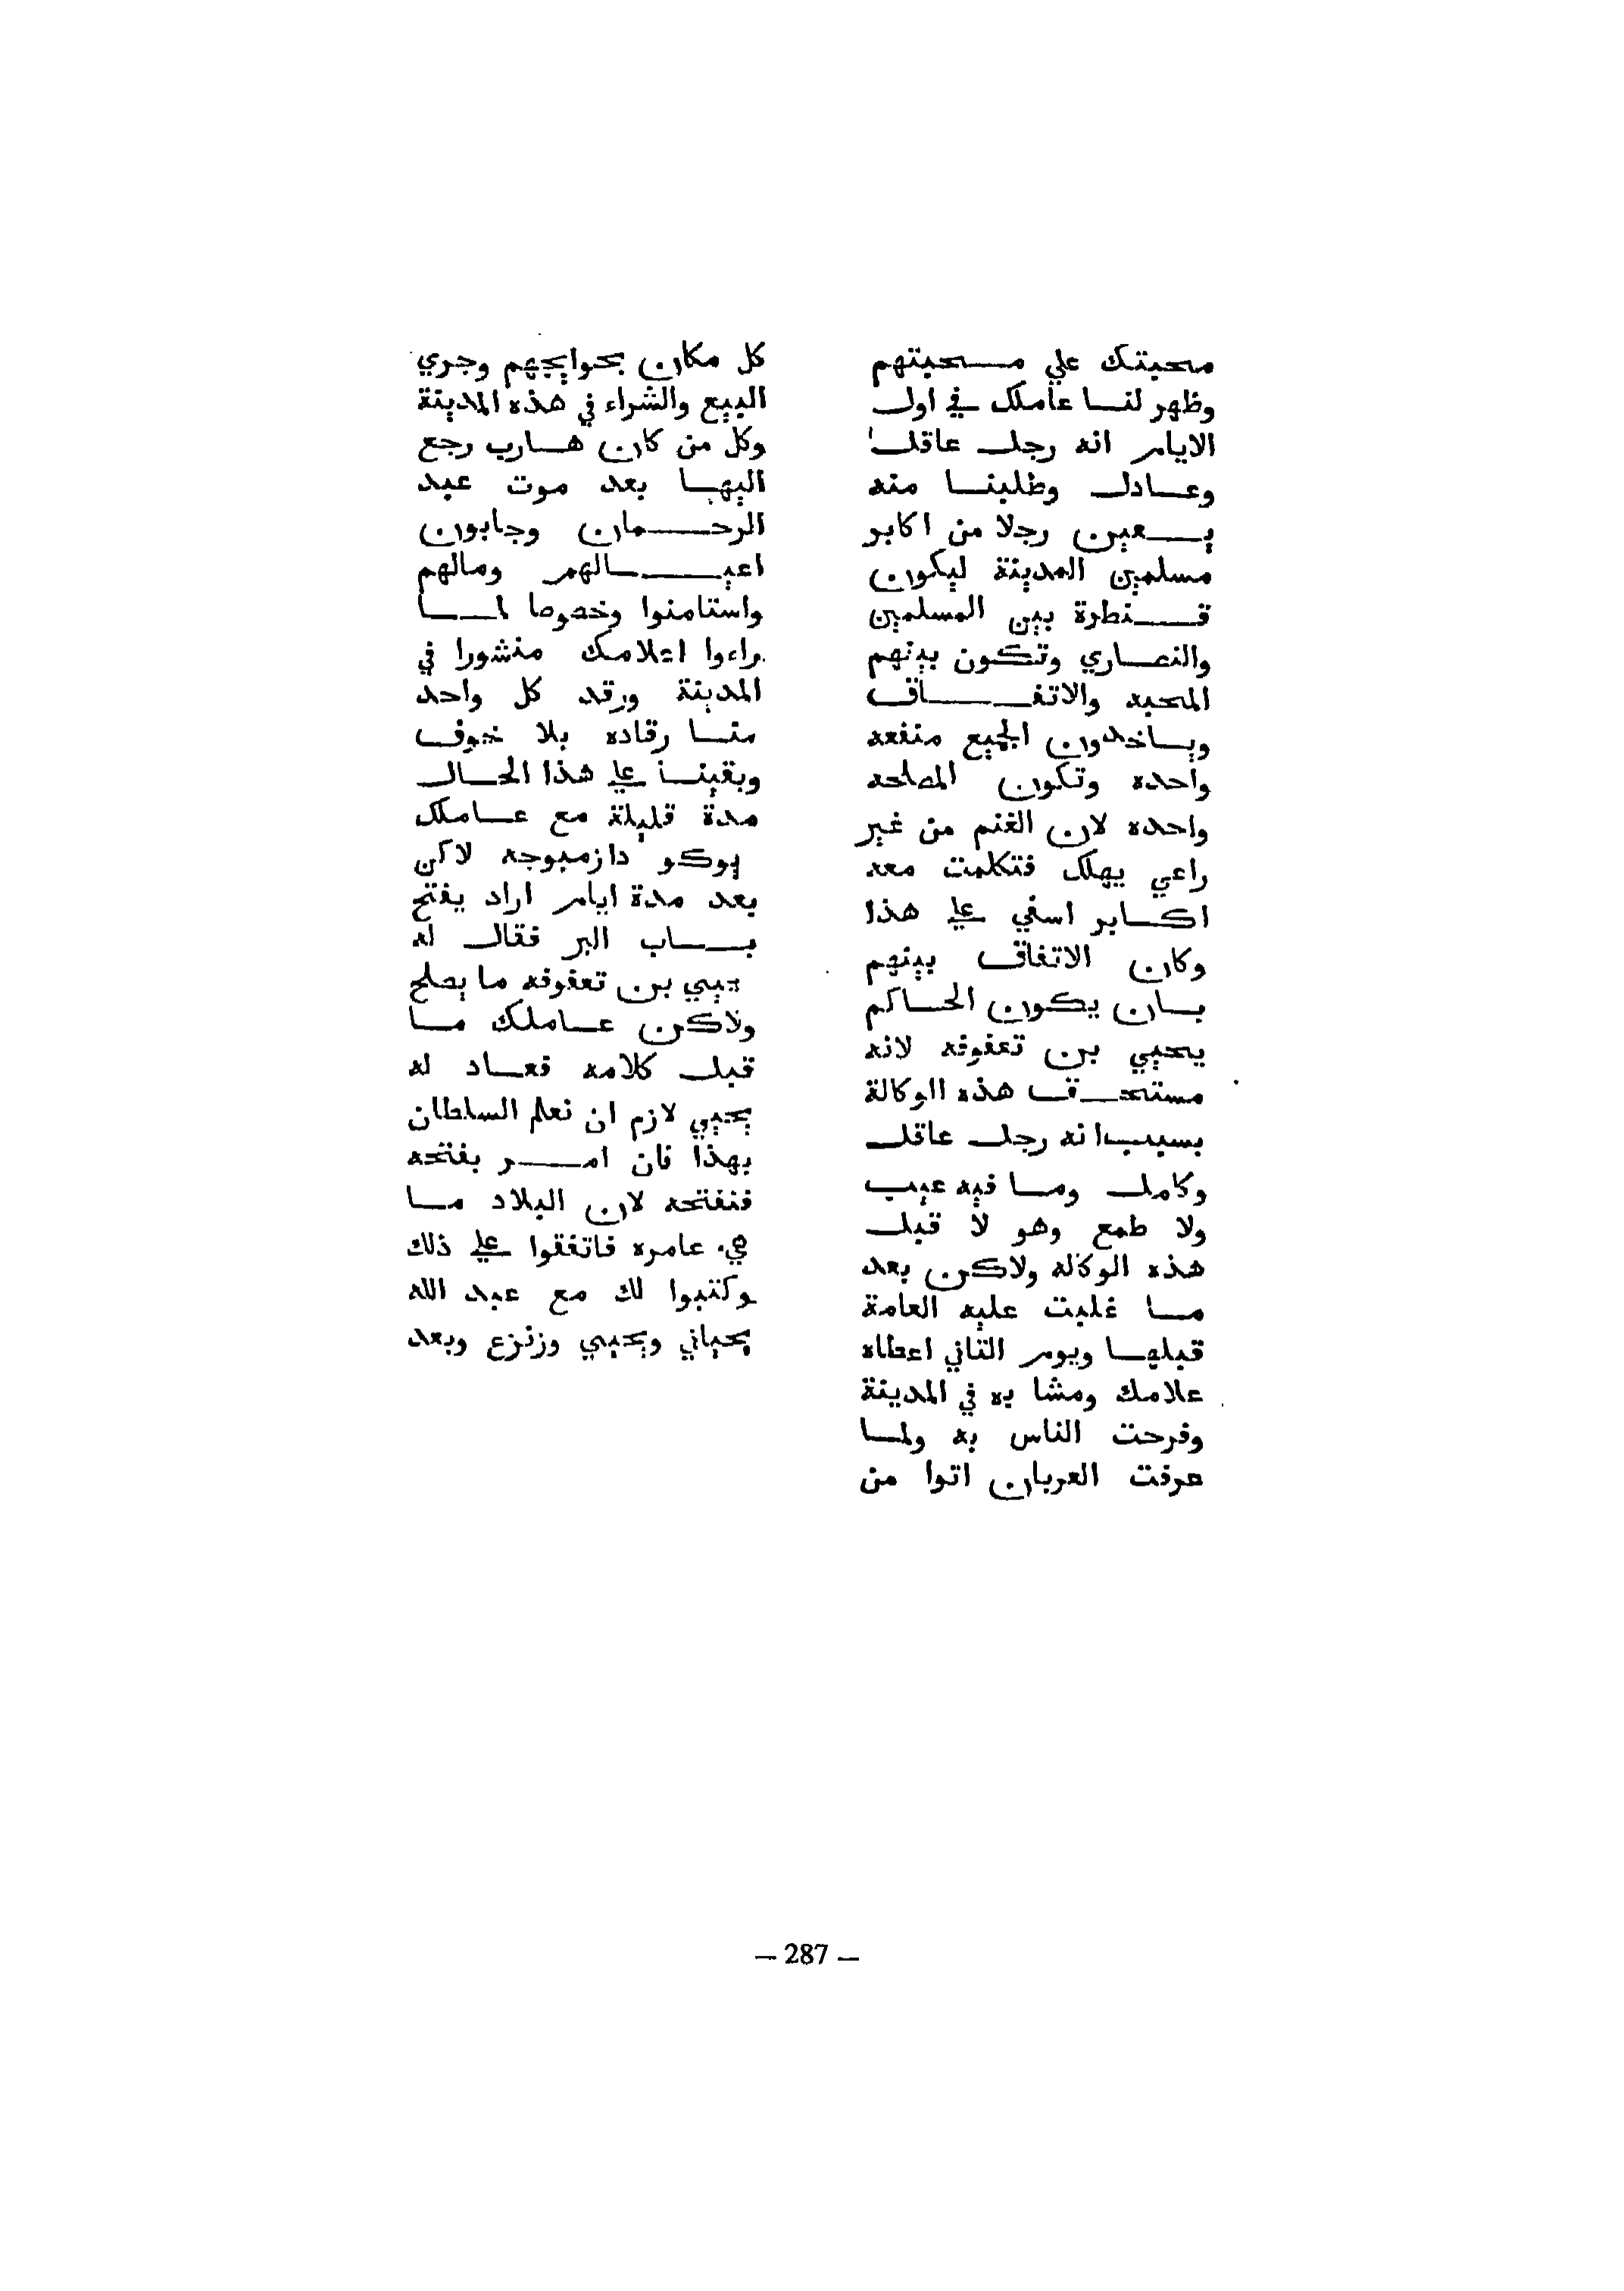 محبتك علي محبتهم
وظهر لنا عاملك في اول
الايام انه رجل عاقل
وعادل وطلبنا منه
يعين رجلا من اكابر
مسلمين المدينة ليكون
قنطرة بين المسلمين
والنصاري وتكون بينهم
المحبه والاتفاق
وياخدون الجميع منفعه
واحده وتكون المصلحه
واحده لان الغنم من غير
راعي يهلك فتكلمت معه
اكابر اسفي علي هذا
وكان الاتفاق بينهم
بان يكون الحاكم
يحيي بن تعفوفه لانه
مستحق هذه الوكالة
بسبب انه رجل عاقل
وكامل وما فيه عيب
ولا طمع وهو لا قبل
هذه الوكاله ولاكن بعد
ما غلبت عليه العامة
قبلها ويوم الثاني اعطاه
علامك ومشا به في المدينة
وفرحت الناس به ولما
عرفت العربان اتوا من
كل مكان بحوايجهم وجري
البيع والشراء في هذه المدينة
وكل من كان هارب رجع
اليها بعد موت عبد
الرحمان وجابون
اعيالهم ومالهم
واستامنوا وخصوصا لما
راءوا اعلامك منشورا في
المدينة ورقد كل واحد
منا رقاده بلا خوف
وبقينا علي هذا الحال
مدة قليلة مع عاملك
يوكو دازمبوجه لاكن
بعد مدة ايام اراد يفتح
باب البر فقال له
يحيي بن تعفوفه ما يصلح
ولاكن عاملك ما
قبل كلامه فعاد له
يحيي لازم ان نعلم السلطان
بهذا فان امر بفتحه
فنفتحه لان البلاد ما
هي عامره فاتفقوا علي ذلك
وكتبوا لك مع عبد الله
يحياني ويحيي وزنزع وبعد
— 287 —